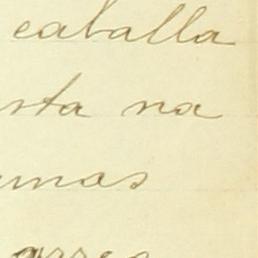 caballa
sta na
mas